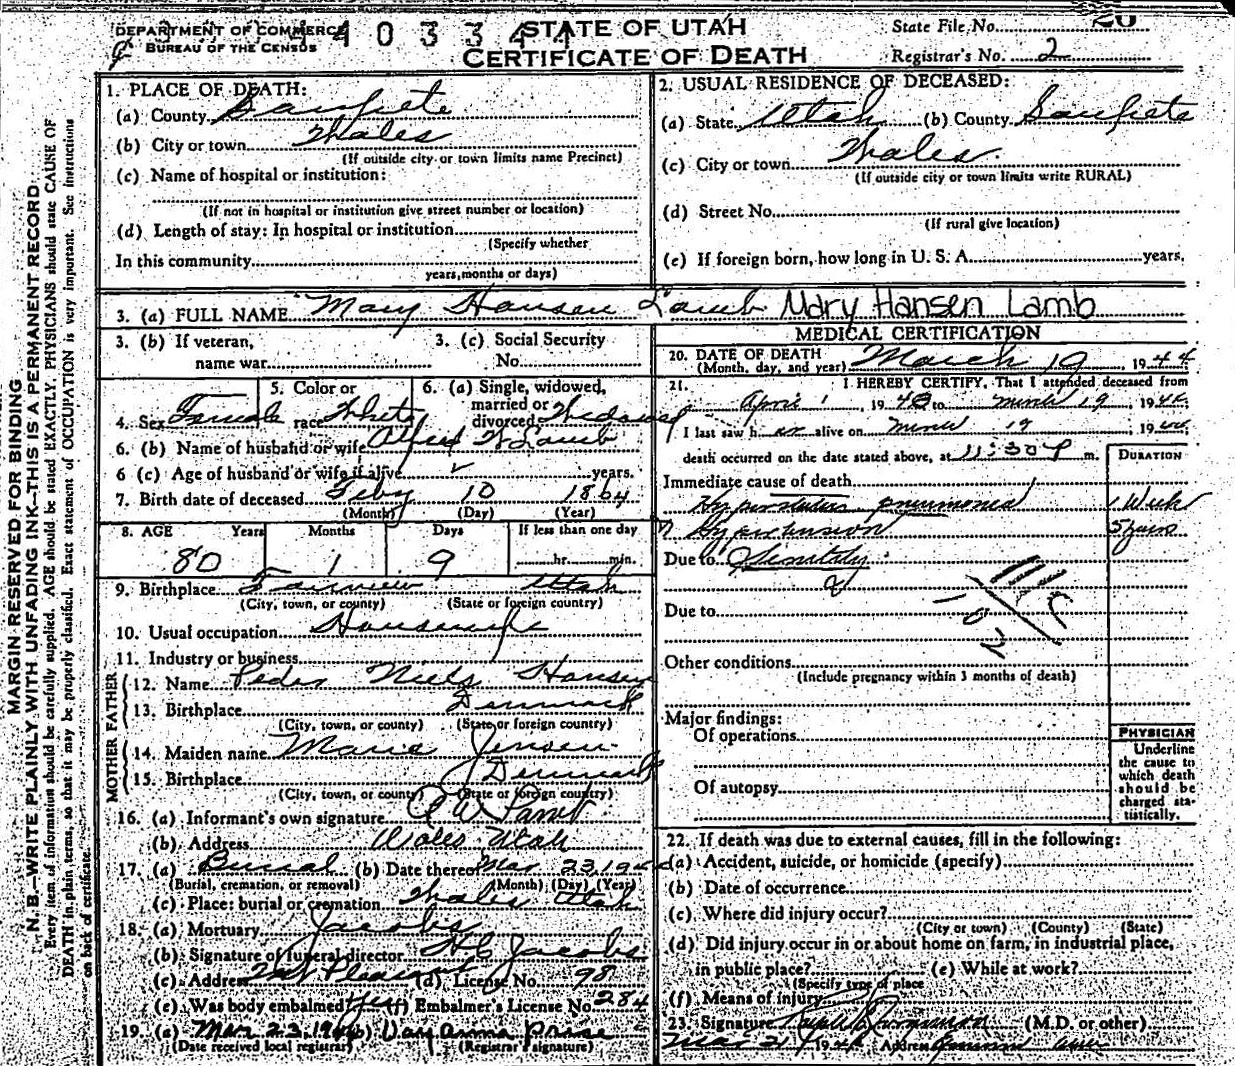 DEPARTMENT OF COMMERCE
BUREAU OF THE CENSUS
STATE OF UTAH
CERTIFICATE OF DEATH
State File No. 20
Registrar's No. 2
MARGIN RESERVED FOR BINDING
N. B.—WRITE PLAINLY WITH UNFADING INK—THIS IS A PERMANENT RECORD
Every item of information should be carefully supplied. AGE should be stated EXACTLY. PHYSICIANS should state CAUSE OF
DEATH in plain terms, so that it may be properly classified. Exact statement of OCCUPATION is very important. See instructions
on back of certificate.
1. PLACE OF DEATH:
(a) County Sanpete
(b) City or town Wales
(If outside city or town limits name Precinct)
(c) Name of hospital or institution:
(If not in hospital or institution give street number or location)
(d) Length of stay: In hospital or institution
(Specify whether
In this community
years, months or days)
2. USUAL RESIDENCE OF DECEASED:
(a) State Utah (b) County Sanpete
(c) City or town Wales.
(If outside city or town limits write RURAL)
(d) Street No.
(If rural give location)
(e) If foreign born, how long in U. S. A. years.
3. (a) FULL NAME Mary Hansen Lamb Mary Hansen Lamb
3. (b) If veteran,
name war
3. (c) Social Security
No.
4. Sex Female
5. Color or
race White
6. (a) Single, widowed,
married or
divorced Widowed
6. (b) Name of husband or wife Alfred W Lamb
6 (c) Age of husband or wife if alive years.
7. Birth date of deceased Feby 10 1864
(Month) (Day) (Year)
8. AGE Years Months Days If less than one day
80 1 9 hr. min.
9. Birthplace Fairview Utah
(City, town, or county) (State or foreign country)
10. Usual occupation Housewife
11. Industry or business
FATHER
12. Name Peder Niels Hansen
13. Birthplace Denmark
(City, town, or county) (State or foreign country)
MOTHER
14. Maiden name Marie Jensen
15. Birthplace Denmark
(City, town, or county) (State or foreign country)
16. (a) Informant's own signature
(b) Address Wales Utah
17. (a) Burial (b) Date thereof Mar 23, 1944
(Burial, cremation, or removal) (Month) (Day) (Year)
(c) Place: burial or cremation Wales Utah
18. (a) Mortuary Jacobs
(b) Signature of funeral director H C Jacobs
(c) Address Mt Pleasant (d) License No. 98
(e) Was body embalmed Yes (f) Embalmer's License No. 284
19. (a) Mar 23, 1944 (b)
(Date received local registrar) (Registrar's signature)
MEDICAL CERTIFICATION
20. DATE OF DEATH
(Month, day, and year) March 19, 1944
21. I HEREBY CERTIFY, That I attended deceased from
April 1, 1943 to March 19, 1944
I last saw h er alive on March 19 1944
death occurred on the date stated above, at 11:30 P m.
DURATION
Immediate cause of death
Hypostatic pneumonia 1 Week
Hypertension 5 years
Due to Senility
Due to
Other conditions
(Include pregnancy within 3 months of death)
Major findings:
Of operations
Of autopsy
PHYSICIAN
Underline
the cause to
which death
should be
charged sta-
tistically.
22. If death was due to external causes, fill in the following:
(a) Accident, suicide, or homicide (specify)
(b) Date of occurrence
(c) Where did injury occur?
(City or town) (County) (State)
(d) Did injury occur in or about home on farm, in industrial place,
in public place? (e) While at work?
(Specify type of place
(f) Means of injury
23. Signature (M.D. or other)
Mar 21, 1944 Address